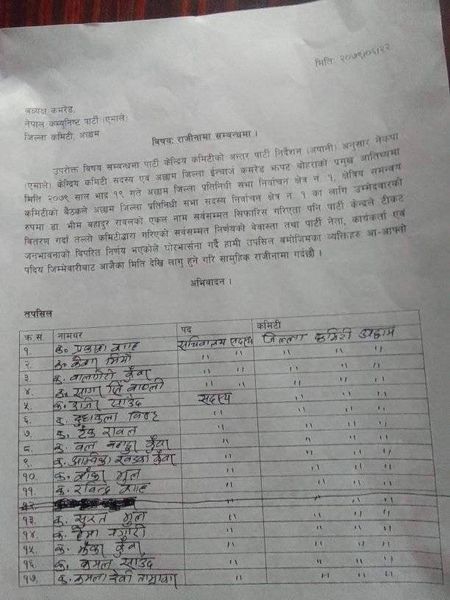 मिति: २०७९/०६/२२
अध्यक्ष कमरेड,
नेपाल कम्युनिष्ट पार्टी (एमाले)
जिल्ला कमिटी, अछाम
विषय: राजीनामा सम्बन्धमा ।
उपरोक्त विषय सम्बन्धमा पार्टी केन्द्रिय कमिटीको अन्तर पार्टी निर्देशन (अपानी) अनुसार नेकपा
(एमाले) केन्द्रिय कमिटी सदस्य एवं अछाम जिल्ला ईन्चार्ज कमरेड झपट बोहराको प्रमुख आतिथ्यमा
मिति २०७९ साल भाद्र १९ गते अछाम जिल्ला प्रतिनिधी सभा सदस्य निर्वाचन क्षेत्र नं १, क्षेत्रिय समन्वय
कमिटीको बैठकले अछाम जिल्ला प्रतिनिधी सभा सदस्य निर्वाचन क्षेत्र नं १ का लागि उम्मेदवारको
रुपमा डा भीम बहादुर रावलको एकल नाम सर्वसम्मत सिफारिस गरिएता पनि पार्टी केन्द्रले टीकट
वितरण गर्दा तल्लो कमिटीद्वारा गरिएको सर्वसम्मत निर्णयको बेवास्ता तथा पार्टी नेता, कार्यकर्ता एवं
जनभावनाको बिपरित निर्णय भएकोले घोरभर्त्सना गर्दै हामी तपसिल बमोजिमका व्यक्तिहरु आ-आफ्नो
पदिय जिम्मेवारीबाट आजैका मिति देखि लागु हुने गरि सामुहिक राजीनामा गर्दछौं ।
अभिवादन ।
तपसिल
क्र.स. नामथर पद कमिटी
१. क. प्रकाश शाह सचिवालय सदस्य जिल्ला कमिटी अछाम
२. क. " " " " "
३. क. कुँवर " " " " "
४. क. " " " " "
५. क. साउँद सदस्य " " "
६. क. " " " "
७. क. टेक रावल " " " "
८. क. कुँवर " " " "
९. क. अम्बिका खड्का कुँवर " " " "
१०. क. " " " "
११. क. रविन्द्र शाह " " " "
१३. क. सुरत " " " "
१४. क. " " " "
१५. क. कुँवर " " " "
१६. क. कमल साउँद " " " "
१७. क. कमला देवी " " " "